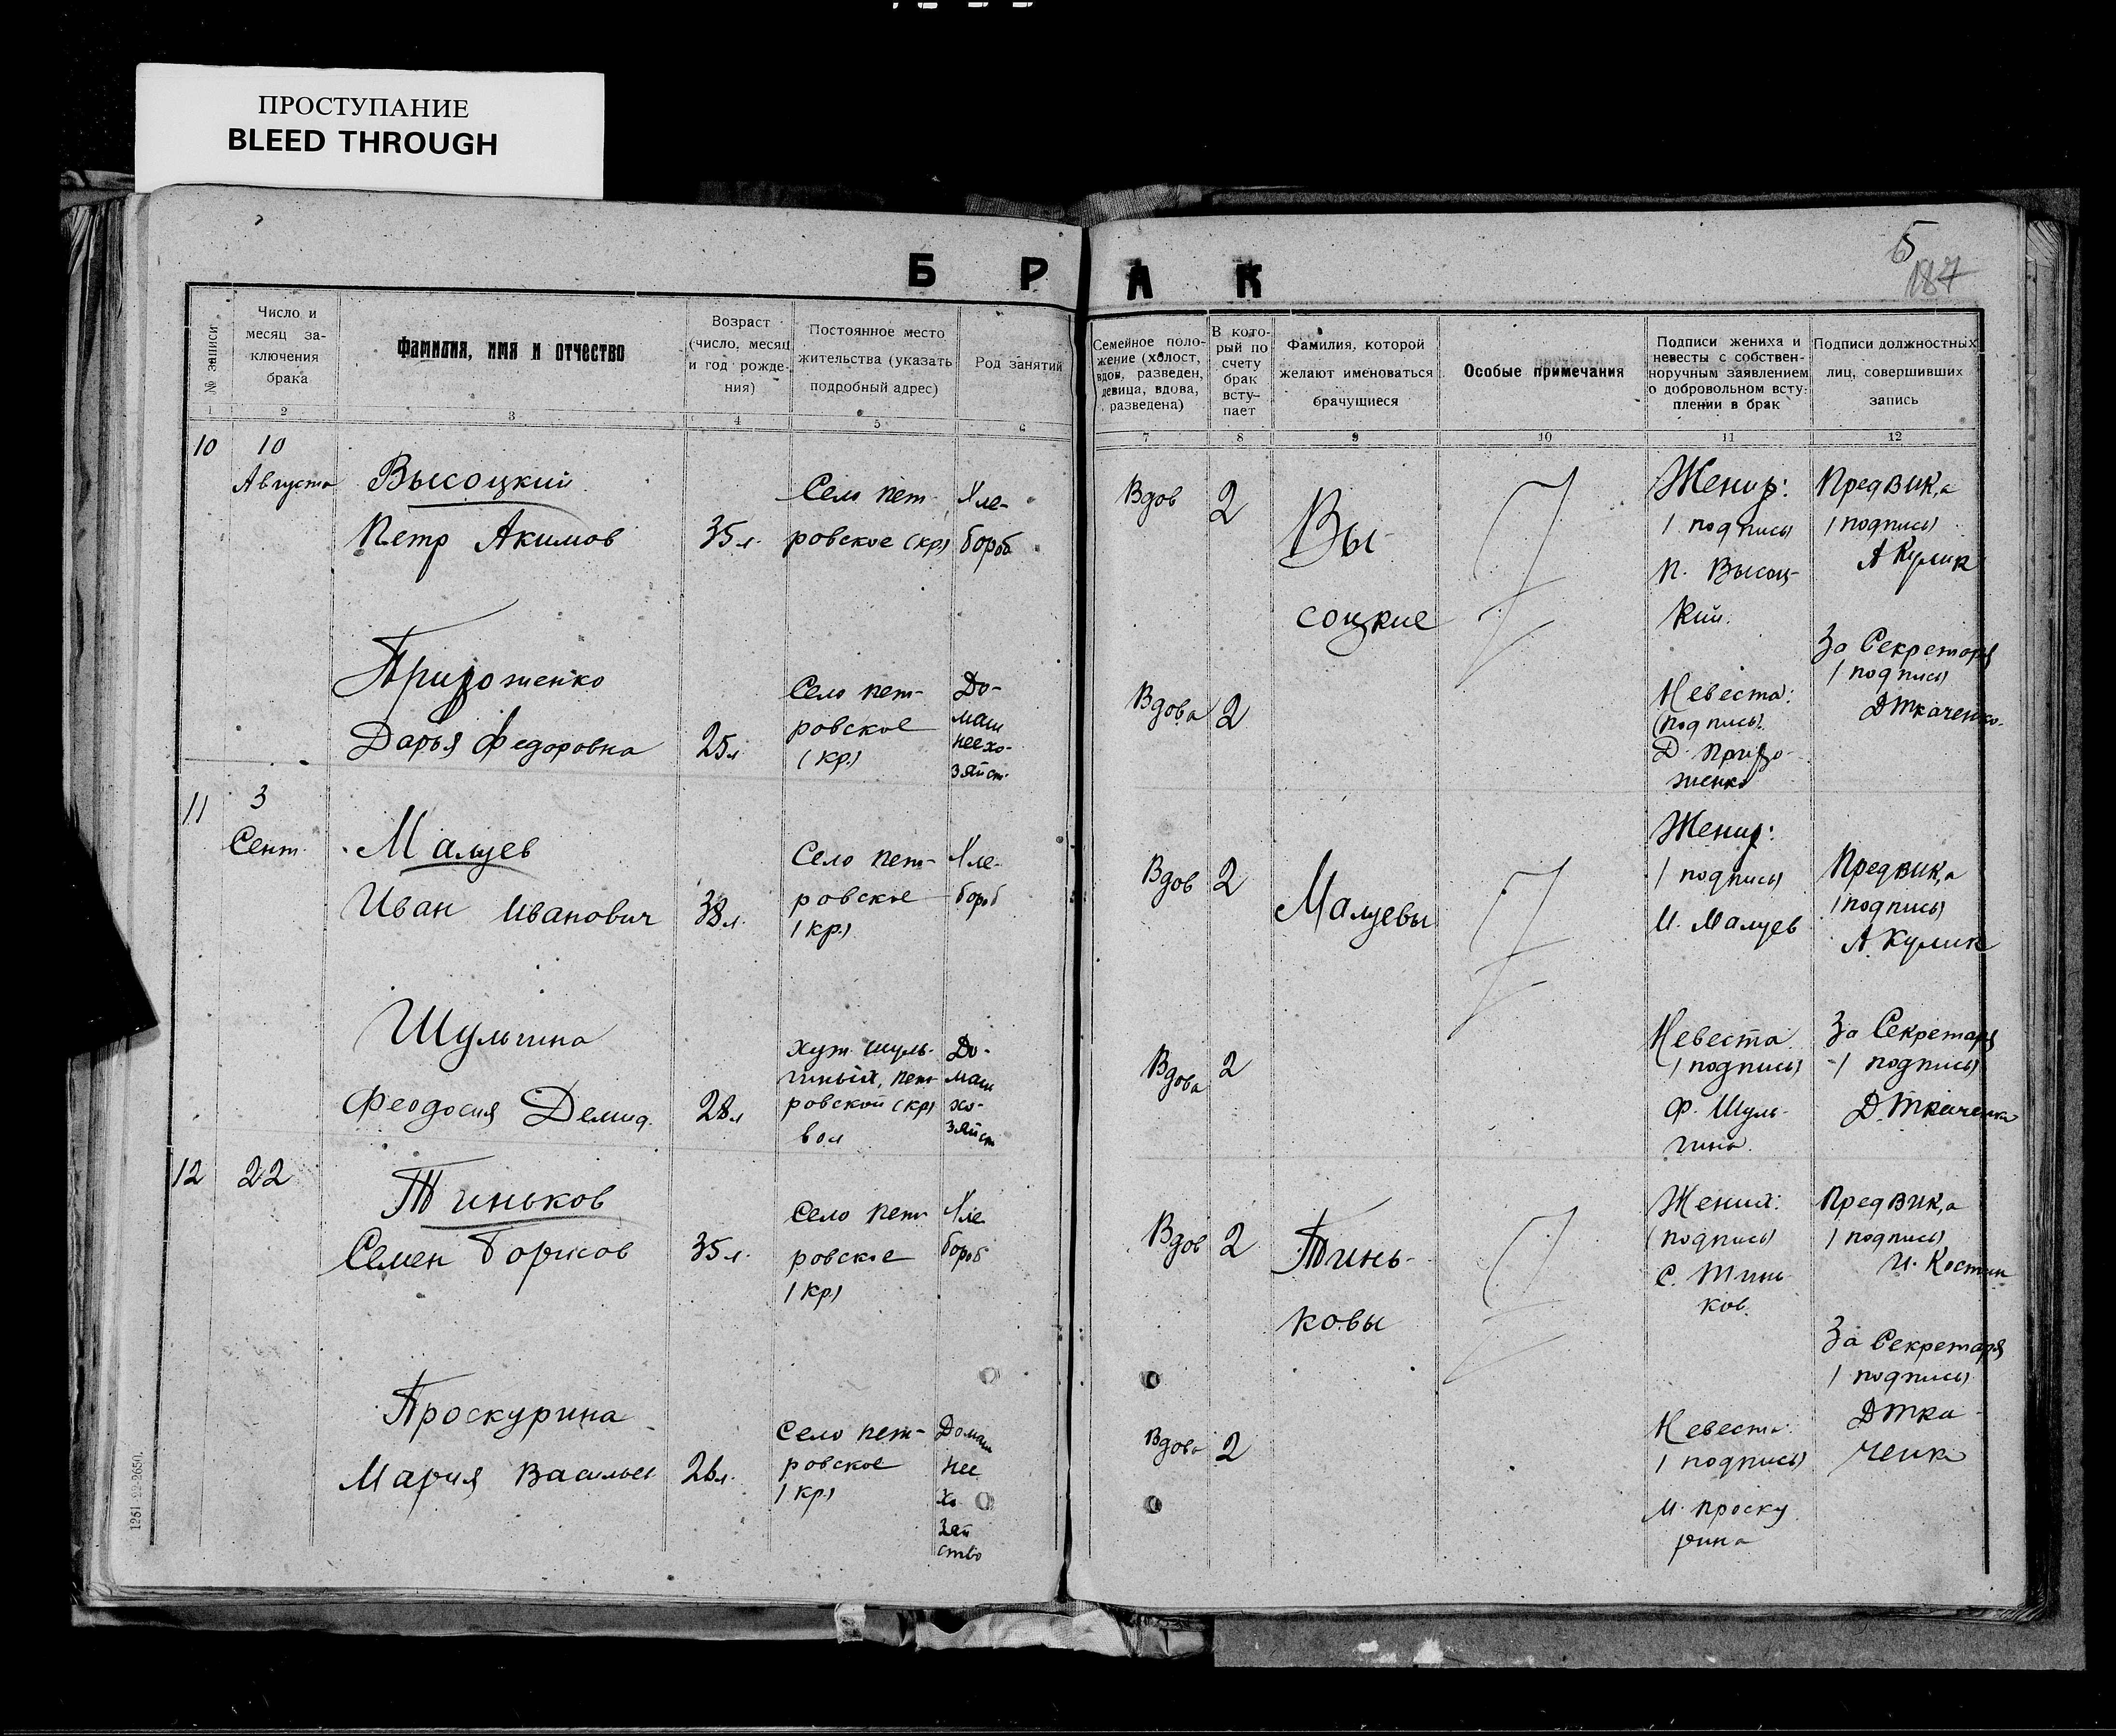 ПРОСТУПАНИЕ
BLEED THROUGH
5
187
Б Р А К
№ записи
Число и
месяц за-
ключения
брака
Фамилия, имя и отчество
Возраст
(число, месяц
и год рожде-
ния)
Постоянное место
жительства (указать
подробный адрес)
Род занятий
Семейное поло-
жение (холост,
вдов, разведен,
девица, вдова,
разведена)
В кото-
рый по
счету
брак
всту-
пает
Фамилия, которой
желают именоваться
брачущиеся
Особые примечания
Подписи жениха и
невесты с собствен-
норучным заявлением
о добровольном всту-
плении в брак
Подписи должностных
лиц, совершивших
запись
1 2 3 4 5 6 7 8 9 10 11 12
10
10
Августа
Высоцкий
Петр Акимов
35 л.
Село Пет-
ровское (кр)
Хле-
бороб
Вдов
2
Вы-
соцкие
Жених:
(подпись)
П. Высоц-
кий.
Предвик,а
(подпись)
А Кулик
Пригоженко
Дарья Федоровна
25 л
Село Пет-
ровское
(кр.)
До-
маш
нее хо-
зяйст.
Вдова
2
Невеста:
(подпись).
Д. Приго-
женко
За Секретаря
(подпись)
Д Ткаченко.
11
3
Сент.
Малуев
Иван Иванович
38 л.
Село Пет-
ровское
(кр.)
Хле-
бороб
Вдов
2
Малуевы
Жених:
(подпись)
И. Малуев
Предвик,а
(подпись)
А. Кулик
Шульгина
Феодосия Демид.
28 л
Хут. Шуль-
гиных, Пет-
ровской (кр)
вол
До-
маш
хо-
зяйст
Вдова
2
Невеста
(подпись)
Ф. Шуль-
гина.
За Секретаря
(подпись)
Д. Ткаченко
12
22
Тиньков
Семен Борисов
35 л.
Село Пет-
ровское
(кр.)
Хле
бороб
Вдов
2
Тинь-
ковы
Жених:
(подпись)
С. Тинь-
ков.
Предвик,а
(подпись)
И. Костин
Проскурина
Мария Васильев
26 л.
Село Пет-
ровское
(кр.)
Домаш
нее
хо
зяй
ство
Вдова
2
Невеста:
(подпись)
М. Проску
рина
За Секретаря
(подпись)
Д Тка-
ченко
1251 22-2650.